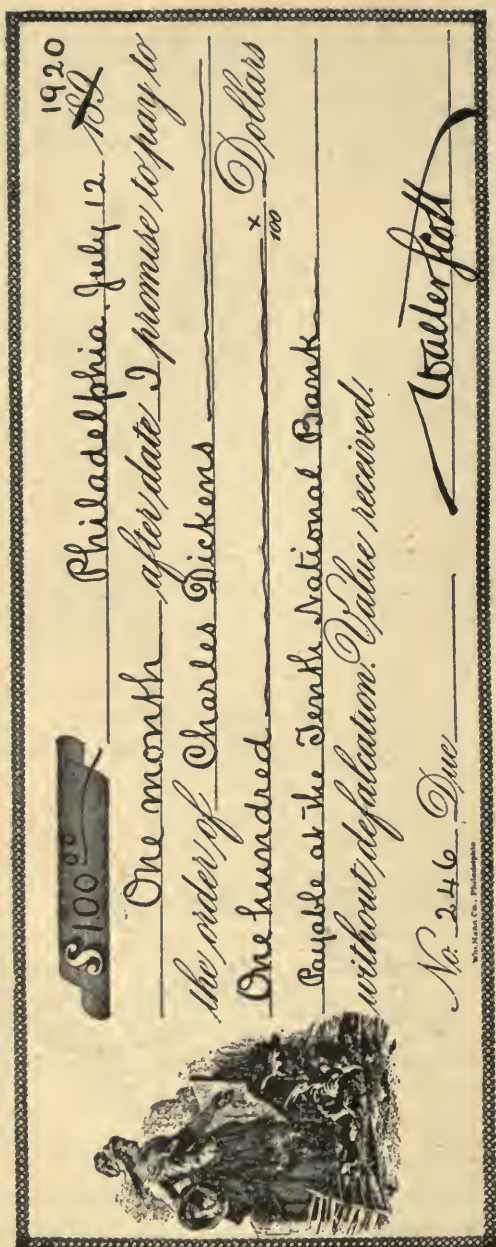 $100.00
Philadelphia. July 12 1920
One month after date I promise to pay to
the order of Charles Dickens
One hundred x/100 Dollars
Payable at the Tenth National Bank
without defalcation. Value received.
No. 246 Due
Walter Scott
Wm. Mann Co., Philadelphia